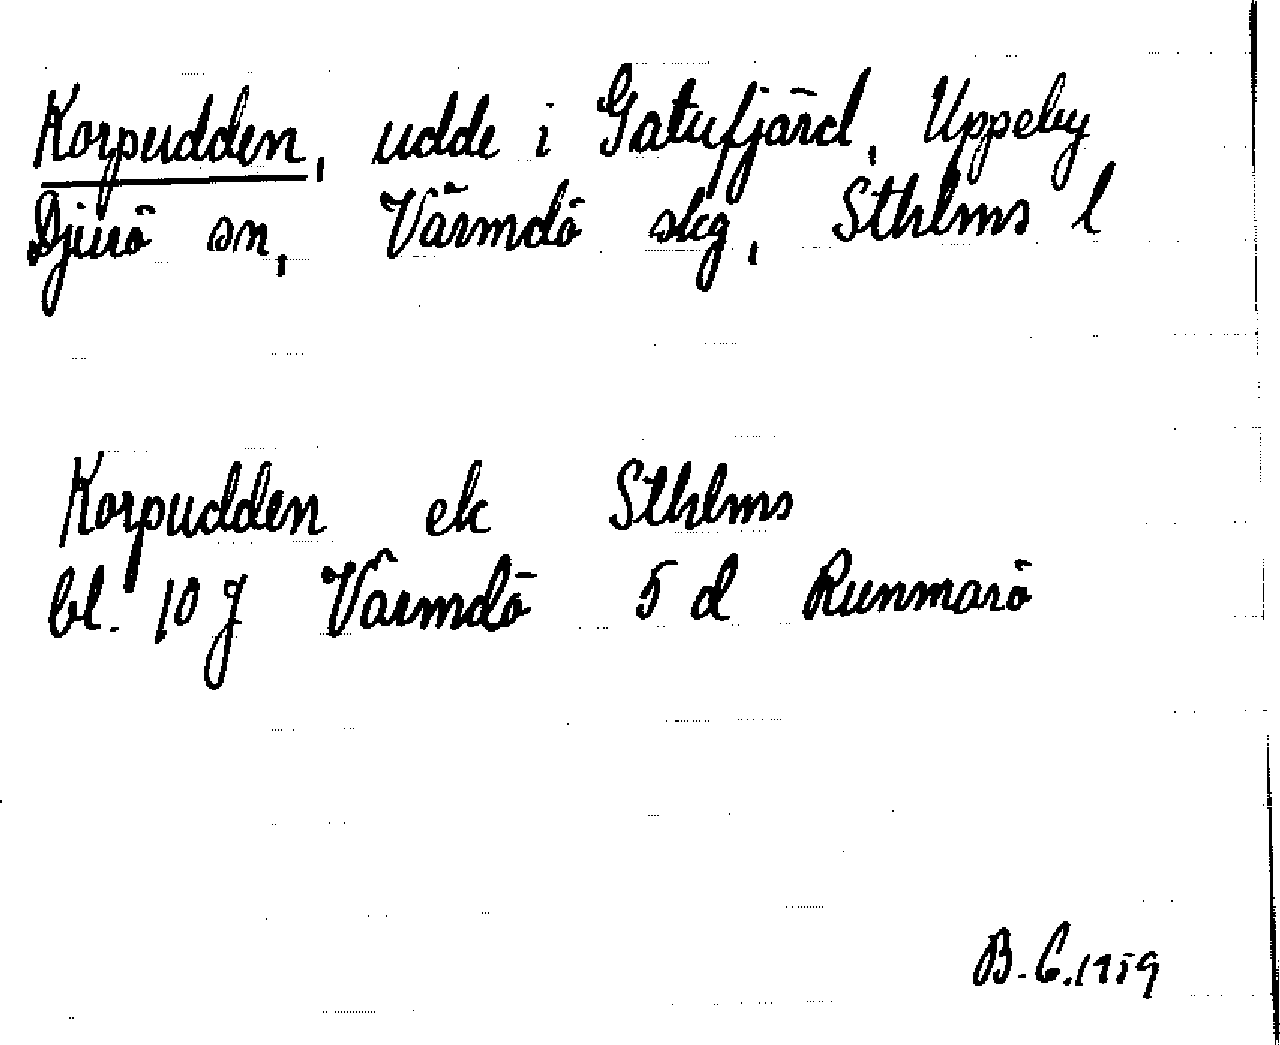 Korpudden, udde i Gatufjärd, Uppeby
Djurö sn, Värmdö skg, Sthlms l
Korpudden ek Sthlms
bl. 10 J Värmdö 5 d Runmarö
B. C. 1959